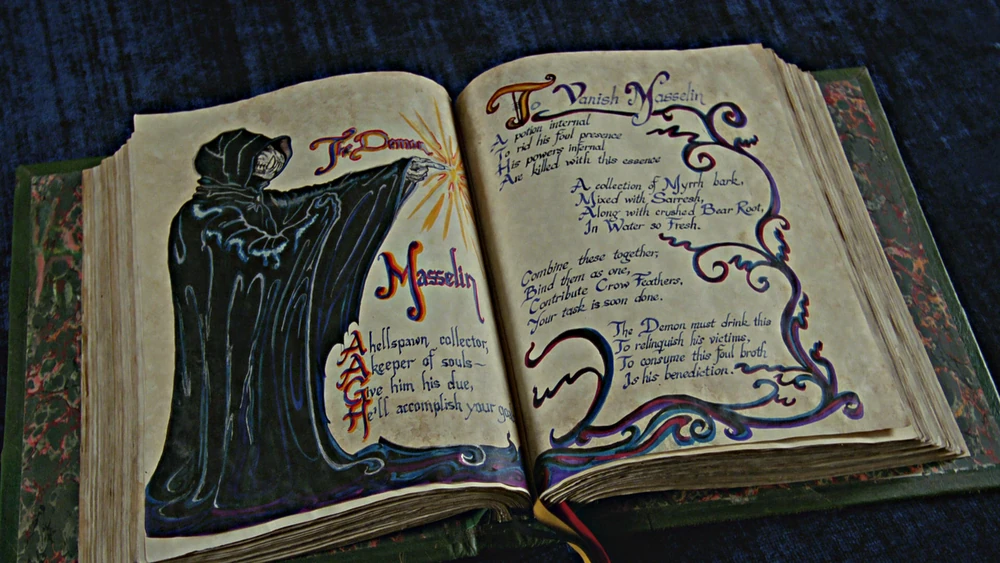 The Demon
Masselin
A hellspawn collector,
A keeper of souls~
Give him his due,
He'll accomplish your
To Vanish Masselin
A potion internal
To rid his foul presence
His powers infernal
Are killed with this essence
A collection of Myrrh bark,
Mixed with Sarresh,
Along with crushed Bear Root,
In Water so Fresh.
Combine these together,
Bind them as one,
Contribute Crow Feathers,
Your task is soon done.
The Demon must drink this
To relinquish his victims,
To consume this foul broth
Is his benediction.